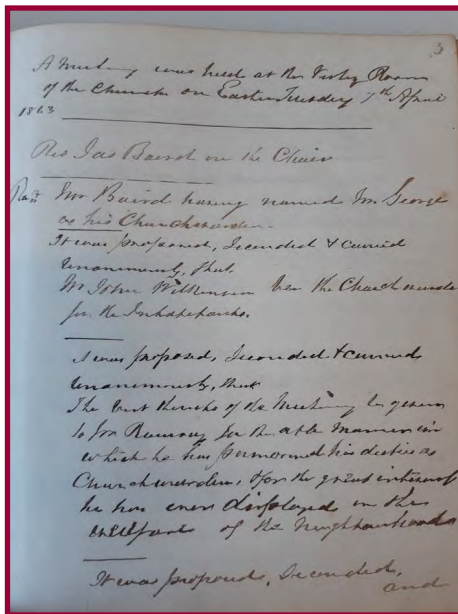 3
A Meeting was held at the Vestry Room
of the Church on Easter Tuesday 7th April
1863
Rev Jas Baird in the Chair
Mr Baird having named Mr George
as his Churchwarden.
It was proposed, Seconded & carried
unanimously, that
Mr John Wilkinson be the Churchwarden
for the Inhabitants.
It was proposed, Seconded & carried
unanimously, that
The best thanks of the Meeting be given
to Mr Ramsay for the able manner in
which he has performed his duties as
Churchwarden & for the great interest
he has ever displayed in the
welfare of the Neighbourhood
It was proposed, Seconded,
and